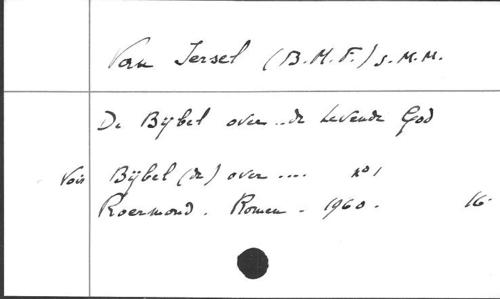 Van Iersel (B.M.F.) s.m.m.
De Bijbel over.. de levende God
Voir Bijbel (de) over .... no 1
Roermond. Romen - 1960. 16.